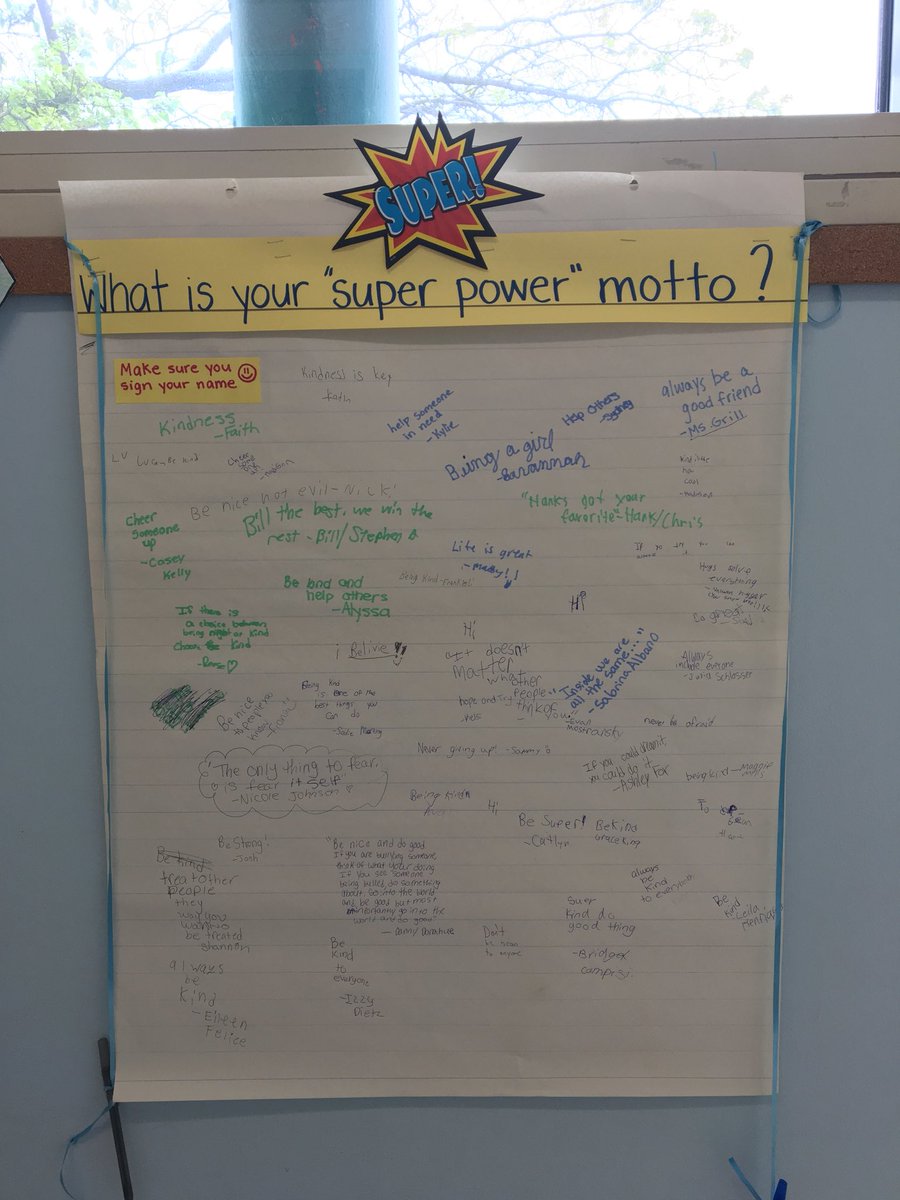 SUPER!
What is your "super power" motto?
Make sure you
sign your name
Kindness is key
Faith
Kindness
-Faith
help someone
in need
-Kylie
Help Others
-Sydney
always be a
good friend
-Ms. Grill
Being a girl
-Savannah
LV
Be nice not evil-Nick!
Cheer
Someone
up
-Casey
Kelly
Bill the best, we win the
rest - Bill/Stephen
"Hanks got your
favorite"-Hank/Chris
Life is great
-Maddy!!
Be kind and
help others
-Alyssa
Being Kind-
Hi
Hugs solve
everything
If there is
a choice between
being right or kind
Choose kind
-Rose
i Belive!!
Hi
It doesn't
Matter
whother
people
think of
you
"Inside we are
all the same..."
-Sabrina Albano
Always
include everyone
-Julia Schlosser
Be nice
to people you
know
Being kind
is one of the
best things you
can do
hope and Try
never be afraid
Never giving up! -Sammy
"The only thing to fear,
is fear it self"
-Nicole Johnson
If you could dream it,
you could do it
-Ashley
being kind -Maggie
Being kind
Hi
Be Super!
-Caitlyn
Be Kind
Grace King
Be Strong!
-Josh
"Be nice and do good
If you are bullying someone,
think of what your doing
If you see someone
being bullied do something
about. Go into the world
and be good but most
importantly go in to the
world and do good"
Be kind
treat other
people
they
way you
be treated
Shannon
always
be
kind
to everybody
Be
kind
Leila
Super
kind do
good thing
-Bridget
Don't
be mean
to anyone
Be
kind
to
everyone
-Izzy
Dietz
always
be
kind
-Eileen
Felice